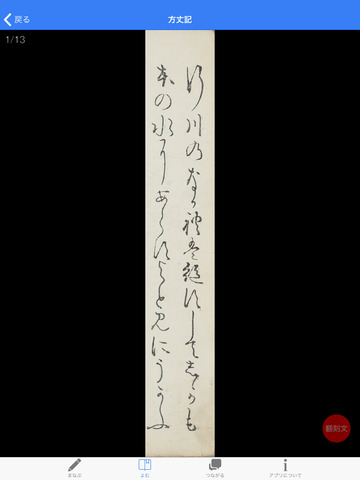 戻る
方丈記
1/13
行川のなかれは絶すしてしかも
本の水にあらすよとみにうかふ
翻刻文
まなぶ
よむ
つながる
アプリについて